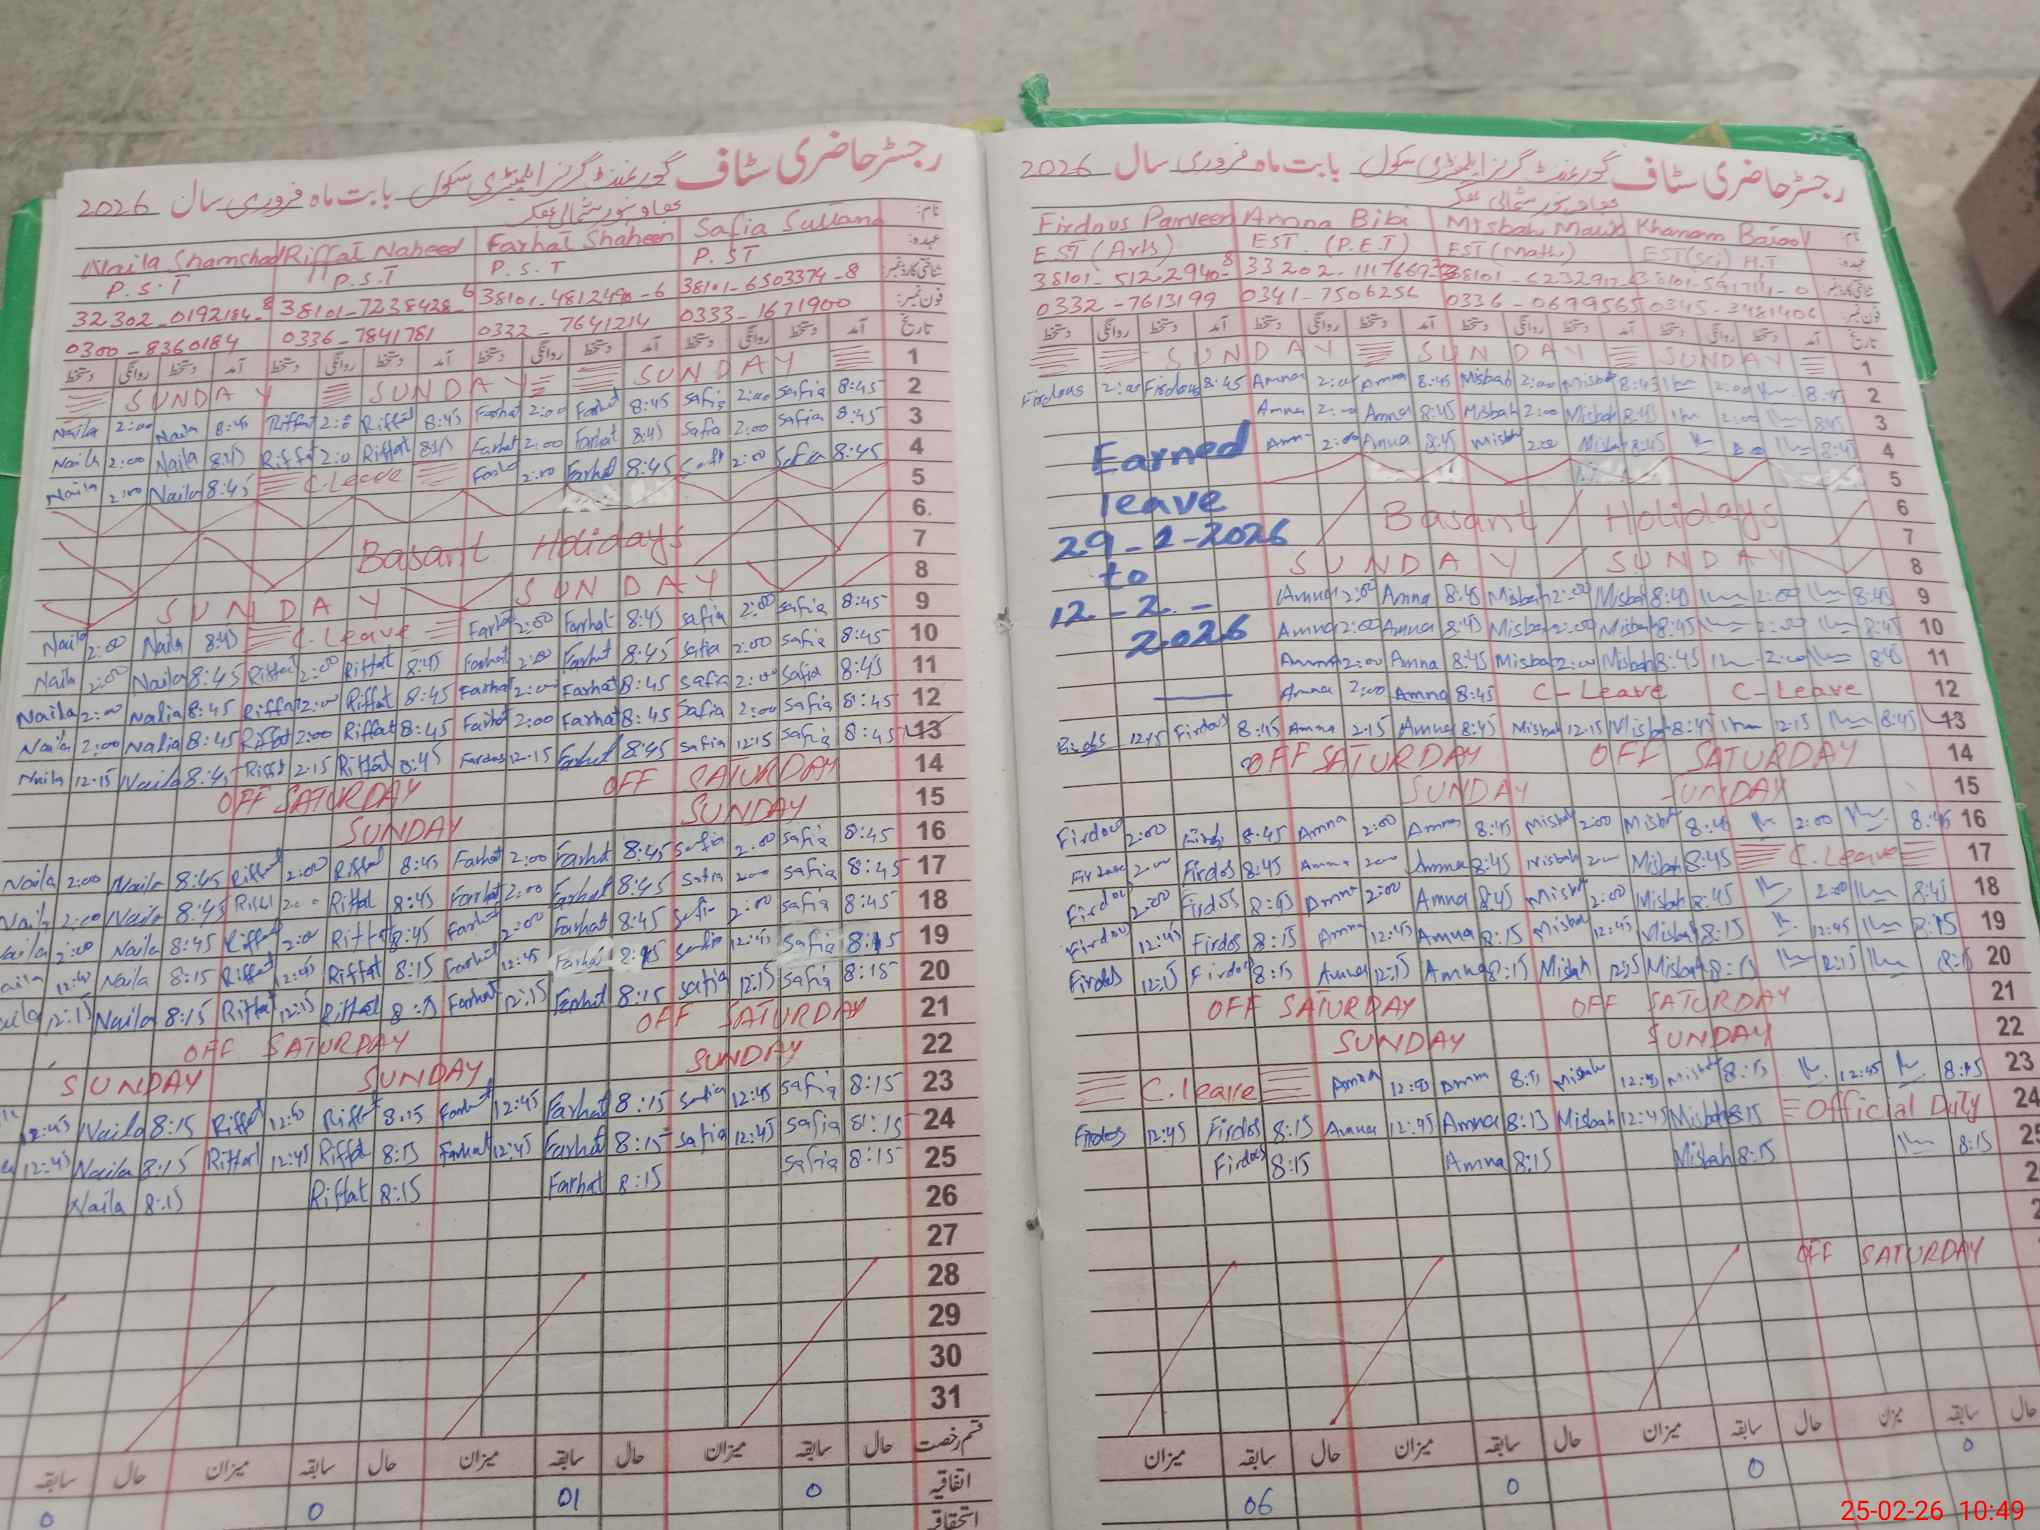 رجسٹر حاضری سٹاف گورنمنٹ گرلز ایلیمنٹری سکول بابت ماہ فروری سال 2026
نام: Safia Sultana Farhat Shaheen Riffat Naheed Naila Shamshad
عہدہ: P.ST P.S.T P.S.T P.S.T
شناختی کارڈ نمبر: 38101-6503374-8
فون نمبر: 0333-1671900 0332-7641214 0336-7841781 0300-8360184
تاریخ آمد دستخط روانگی دستخط آمد دستخط روانگی دستخط آمد دستخط روانگی دستخط آمد دستخط روانگی دستخط
1 SUNDAY SUNDAY SUNDAY
2 Naila 2:00 Naila 8:45 Riffat Riffat 8:45 Farhat 2:00 Farhat 8:45 Safia 2:00 Safia 8:45
3 Naila 2:00 Naila 8:45 Riffat Riffat 8:45 Farhat 2:00 Farhat 8:45 Safia 2:00 Safia 8:45
4 Naila 2:00 Naila 8:45 C.Leave 2:00 Farhat 8:45 2:00 Safia 8:45
5
6
7 Basant Holidays
8 SUNDAY SUNDAY
9 Naila 2:00 Naila 8:45 C.Leave Farhat 2:00 Farhat 8:45 Safia 2:00 Safia 8:45
10 Naila 2:00 Naila 8:45 Riffat 2:00 Riffat 8:45 Farhat 2:00 Farhat 8:45 Safia 2:00 Safia 8:45
11 Naila 2:00 Nalia 8:45 Riffat 2:00 Riffat 8:45 Farhat 2:00 Farhat 8:45 Safia 2:00 Safia 8:45
12 Naila 2:00 Nalia 8:45 Riffat 2:00 Riffat 8:45 Farhat 2:00 Farhat 8:45 Safia 2:00 Safia 8:45
13 Naila 12:15 Naila 8:45 Riffat 2:15 Riffat 8:45 12:15 Farhat 8:45 Safia 12:15 Safia 8:45
14 OFF SATURDAY OFF SATURDAY
15 SUNDAY SUNDAY
16 Naila 2:00 Naila 8:45 Riffat 2:00 Riffat 8:45 Farhat 2:00 Farhat 8:45 Safia 2:00 Safia 8:45
17 Naila 2:00 Naila 8:45 Riffat Riffat 8:45 Farhat 2:00 Farhat 8:45 Safia 2:00 Safia 8:45
18 Naila 2:00 Naila 8:45 Riffat 2:00 Riffat 8:45 Farhat 2:00 Farhat 8:45 Safia 2:00 Safia 8:45
19 Naila 8:15 Riffat 12:45 Riffat 8:15 Farhat 12:45 Farhat Safia 12:45 Safia 8:15
20 12:15 Naila 8:15 Riffat 12:15 Riffat 8:15 Farhat 12:15 Farhat 8:15 Safia 12:15 Safia 8:15
21 OFF SATURDAY OFF SATURDAY
22 SUNDAY SUNDAY SUNDAY
23 12:45 Naila 8:15 Riffat Riffat 8:15 Farhat 12:45 Farhat 8:15 Safia 12:45 Safia 8:15
24 12:45 Naila 8:15 Riffat 12:45 Riffat 8:15 Farhat 12:45 Farhat 8:15 Safia 12:45 Safia 8:15
25 Naila 8:15 Riffat 8:15 Farhat 8:15 Safia 8:15
26
27
28
29
30
31
قسم رخصت حال سابقہ میزان حال سابقہ میزان حال سابقہ میزان حال سابقہ
اتفاقیہ 0 01 0 0
استحقاقیہ
رجسٹر حاضری سٹاف گورنمنٹ گرلز ایلیمنٹری سکول بابت ماہ فروری سال 2026
Firdous Parveen Amna Bibi Misbah Khanam نام
EST (Arts) EST. (P.E.T) EST (Math) EST (Sci) H.T عہدہ:
0332-7613199 0341-7506256 0336-0699565 0345-3481406 فون نمبر:
دستخط روانگی دستخط آمد دستخط روانگی دستخط آمد دستخط روانگی دستخط آمد دستخط روانگی دستخط آمد تاریخ
SUNDAY SUNDAY SUNDAY 1
Firdous 2:00 Firdous 8:45 Amna 2:00 Amna 8:45 Misbah 2:00 Misbah 8:45 2:00 8:45 2
Amna 2:00 Amna 8:45 Misbah 2:00 Misbah 8:45 2:00 8:45 3
Amna 2:00 Amna 8:45 Misbah 2:00 Misbah 8:45 8:45 4
Earned
leave
29-1-2026
to
12-2-
2026
5
Basant Holidays 6
7
SUNDAY SUNDAY 8
Amna 2:00 Amna 8:45 Misbah 2:00 Misbah 8:45 2:00 8:45 9
Amna 2:00 Amna 8:45 Misbah 2:00 Misbah 8:45 2:00 8:45 10
Amna 2:00 Amna 8:45 Misbah 2:00 Misbah 8:45 2:00 8:45 11
Amna 2:00 Amna 8:45 C-Leave C-Leave 12
Firdos Firdous 8:45 Amna 2:15 Amna 8:45 Misbah 12:15 Misbah 8:45 12:15 8:45 13
OFF SATURDAY OFF SATURDAY 14
SUNDAY SUNDAY 15
Firdous 2:00 Firdos 8:45 Amna 2:00 Amna 8:45 Misbah 2:00 Misbah 8:45 2:00 8:45 16
Firdous 2:00 Firdos 8:45 Amna 2:00 Amna 8:45 Misbah Misbah 8:45 C.Leave 17
Firdous 2:00 Firdos 8:45 Amna 2:00 Amna 8:45 Misbah 2:00 Misbah 8:45 2:00 8:45 18
Firdous 12:45 Firdos 8:15 Amna 12:45 Amna 8:15 Misbah 12:45 Misbah 8:15 12:45 8:15 19
Firdos 12:15 Firdos 8:15 Amna 12:15 Amna 8:15 Misbah 12:15 Misbah 8:15 12:15 8:15 20
OFF SATURDAY OFF SATURDAY 21
SUNDAY SUNDAY 22
C.leave Amna Amna 8:15 Misbah Misbah 8:15 12:45 8:15 23
Firdos 12:45 Firdos 8:15 Amna 12:45 Amna 8:15 Misbah 12:45 Misbah 8:15 Official Duty 24
Firdous 8:15 Amna 8:15 Misbah 8:15 8:15 25
OFF SATURDAY
میزان سابقہ حال میزان سابقہ حال میزان سابقہ حال میزان سابقہ حال
06 0 0 0
25-02-26 10:49